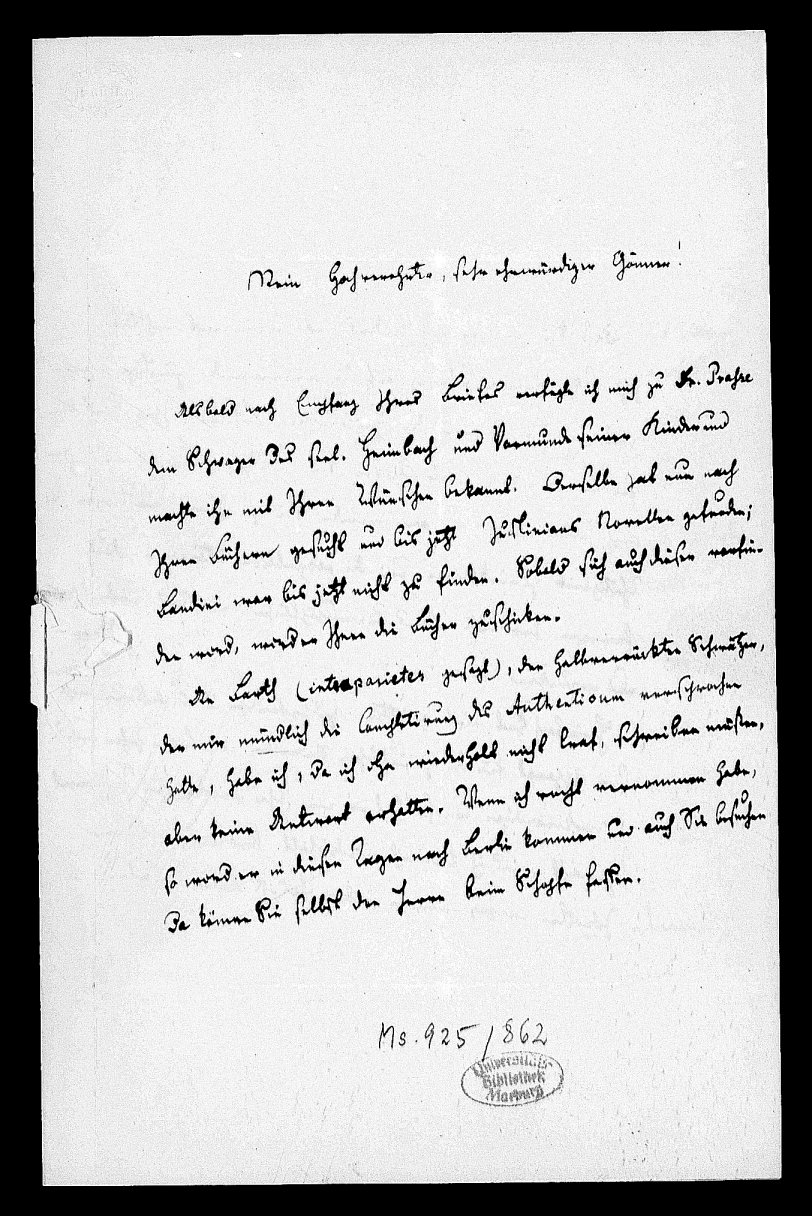 Mein Hochverehrter, sehr ehrwürdiger Gönner!
Alsbald nach Empfang Ihres Briefes verfügte ich mich zu Dr. Prasse
dem Schwager des seel. Heimbach und Vormunde seiner Kinder und
machte ihn mit Ihren Wünschen bekannt. Derselbe hat nun nach
Ihren Büchern gesucht und bis jetzt Justinians Novellen gefunden;
Bandini war bis jetzt nicht zu finden. Sobald sich auch dieser vorfin-
den wird, wird er Ihnen die Bücher zuschicken.
An Barth (intra parietes gesagt), den halbverrückten Schwätzer,
der mir mündlich die Completirung des Authenticum versprochen
hatte, habe ich, da ich ihn wiederholt nicht traf, schreiben müssen,
aber keine Antwort erhalten. Wenn ich recht vernommen habe,
so wird er in diesen Tagen nach Berlin kommen und auch Sie besuchen
Da können Sie selbst den Herrn beim Schopfe fassen.
Ms. 925/862
Universitäts-
Bibliothek
Marburg